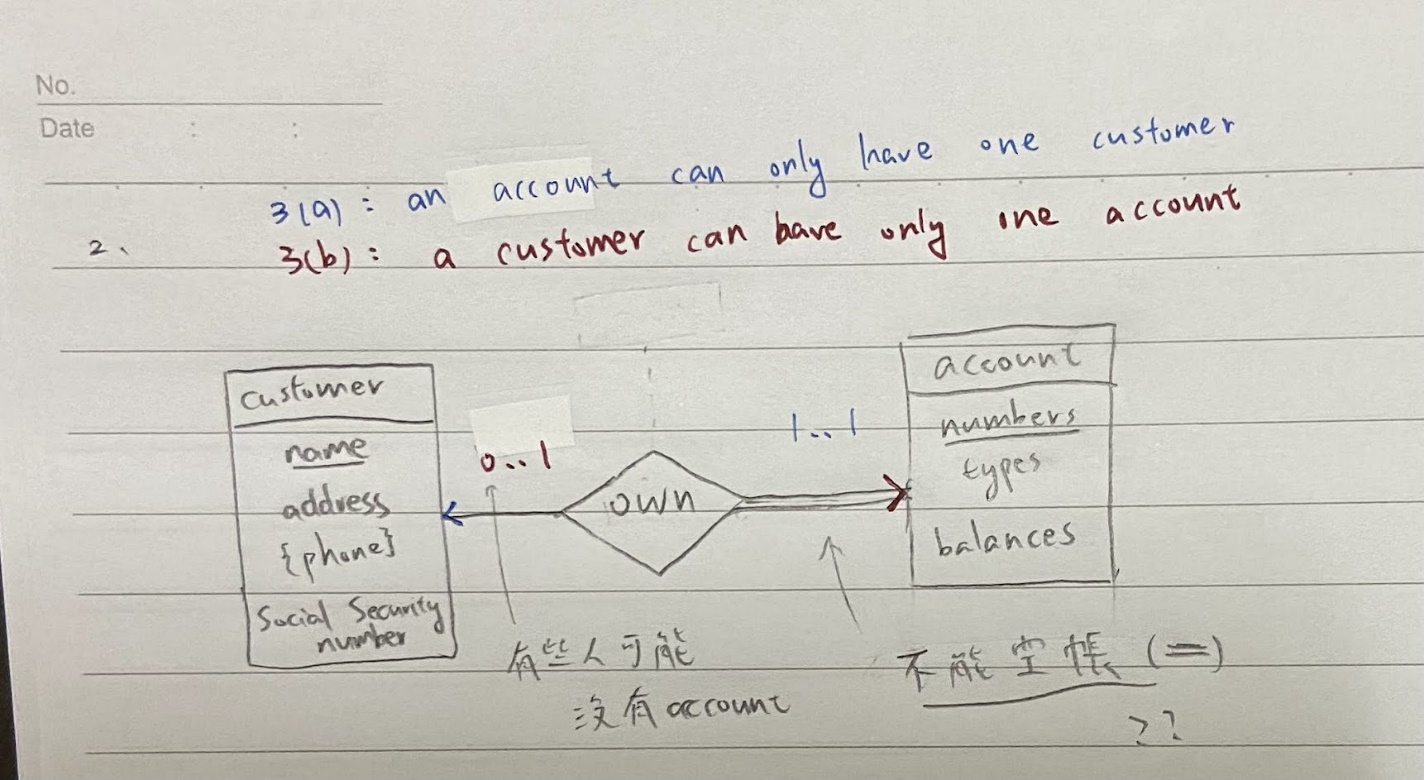 No.
Date : :
3(a) : an account can only have one customer
2、 3(b) : a customer can have only one account
customer
name
address
{phone}
Social Security
number
0..1
own
1..1
account
numbers
types
balances
有些人可能
沒有account
不能空帳 (=)
??